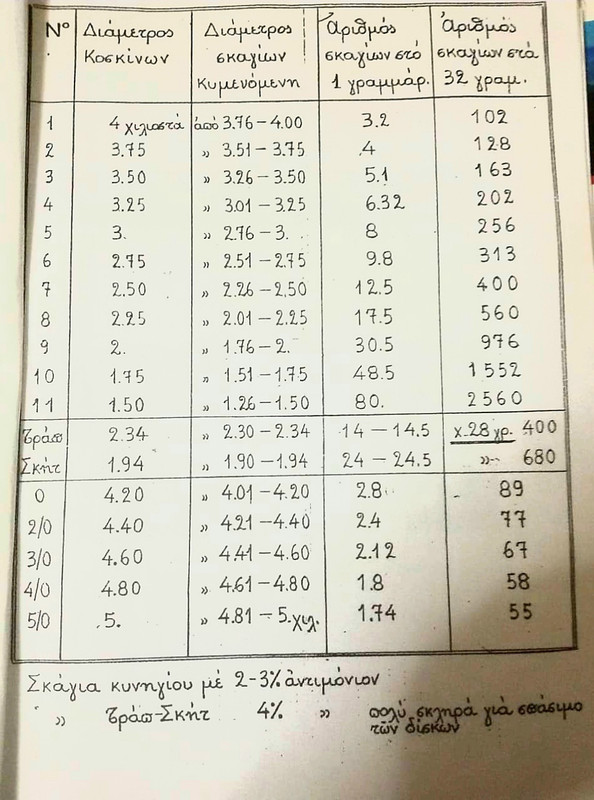 Νο Διάμετρος Κοσκίνων Διάμετρος σκαγίων Κυμενόμενη Ἀριθμός σκαγίων στό 1 γραμμάρ. Ἀριθμός σκαγίων στά 32 γραμ.
1 4 χιλιοστά ἀπό 3.76 – 4.00 3.2 102
2 3.75 » 3.51 – 3.75 4 128
3 3.50 » 3.26 – 3.50 5.1 163
4 3.25 » 3.01 – 3.25 6.32 202
5 3. » 2.76 – 3. 8 256
6 2.75 » 2.51 – 2.75 9.8 313
7 2.50 » 2.26 – 2.50 12.5 400
8 2.25 » 2.01 – 2.25 17.5 560
9 2. » 1.76 – 2. 30.5 976
10 1.75 » 1.51 – 1.75 48.5 1552
11 1.50 » 1.26 – 1.50 80. 2560
Τράπ 2.34 » 2.30 – 2.34 14 – 14.5 χ.28 γρ. 400
Σκήτ 1.94 » 1.90 – 1.94 24 – 24.5 » 680
0 4.20 » 4.01 – 4.20 2.8 89
2/0 4.40 » 4.21 – 4.40 2.4 77
3/0 4.60 » 4.41 – 4.60 2.12 67
4/0 4.80 » 4.61 – 4.80 1.8 58
5/0 5. » 4.81 – 5.χιλ. 1.74 55
Σκάγια κυνηγίου μέ 2-3% ἀντιμόνιον
» Τράπ-Σκήτ 4% » πολύ σκληρά γιά σπάσιμο
τῶν δίσκων